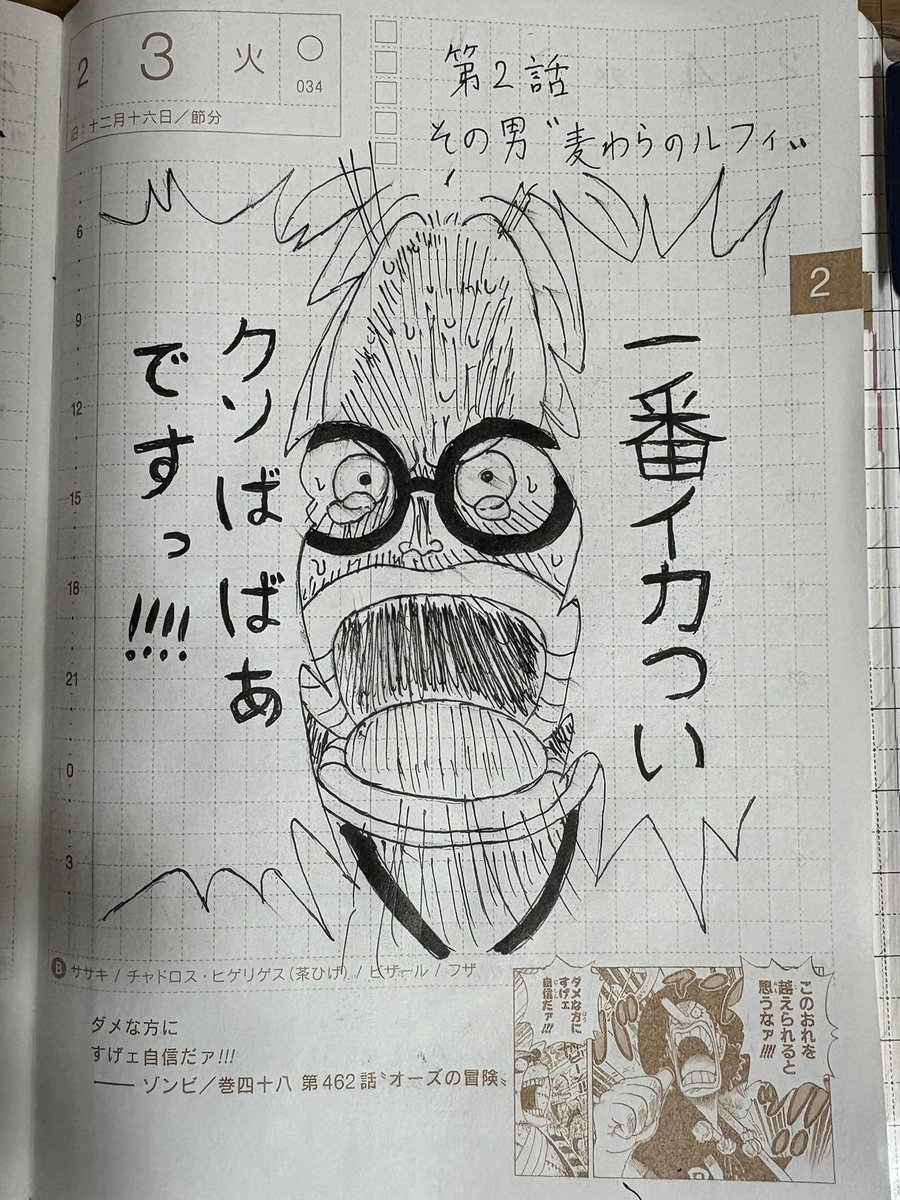 2 3 火 ○
034
旧:十二月十六日/節分
第2話
その男〝麦わらのルフィ〟
2
一番イカつい
クソばばあ
ですっ!!!!
6
9
12
15
18
21
0
3
B ササキ / チャドロス・ヒゲリゲス(茶ひげ) / ビザール / フザ
ダメな方に
すげェ自信だァ!!!
── ゾンビ/巻四十八 第462話〝オーズの冒険〟
このおれを
越えられると
思うなァ!!!!
ダメな方に
すげェ
自信だァ!!!